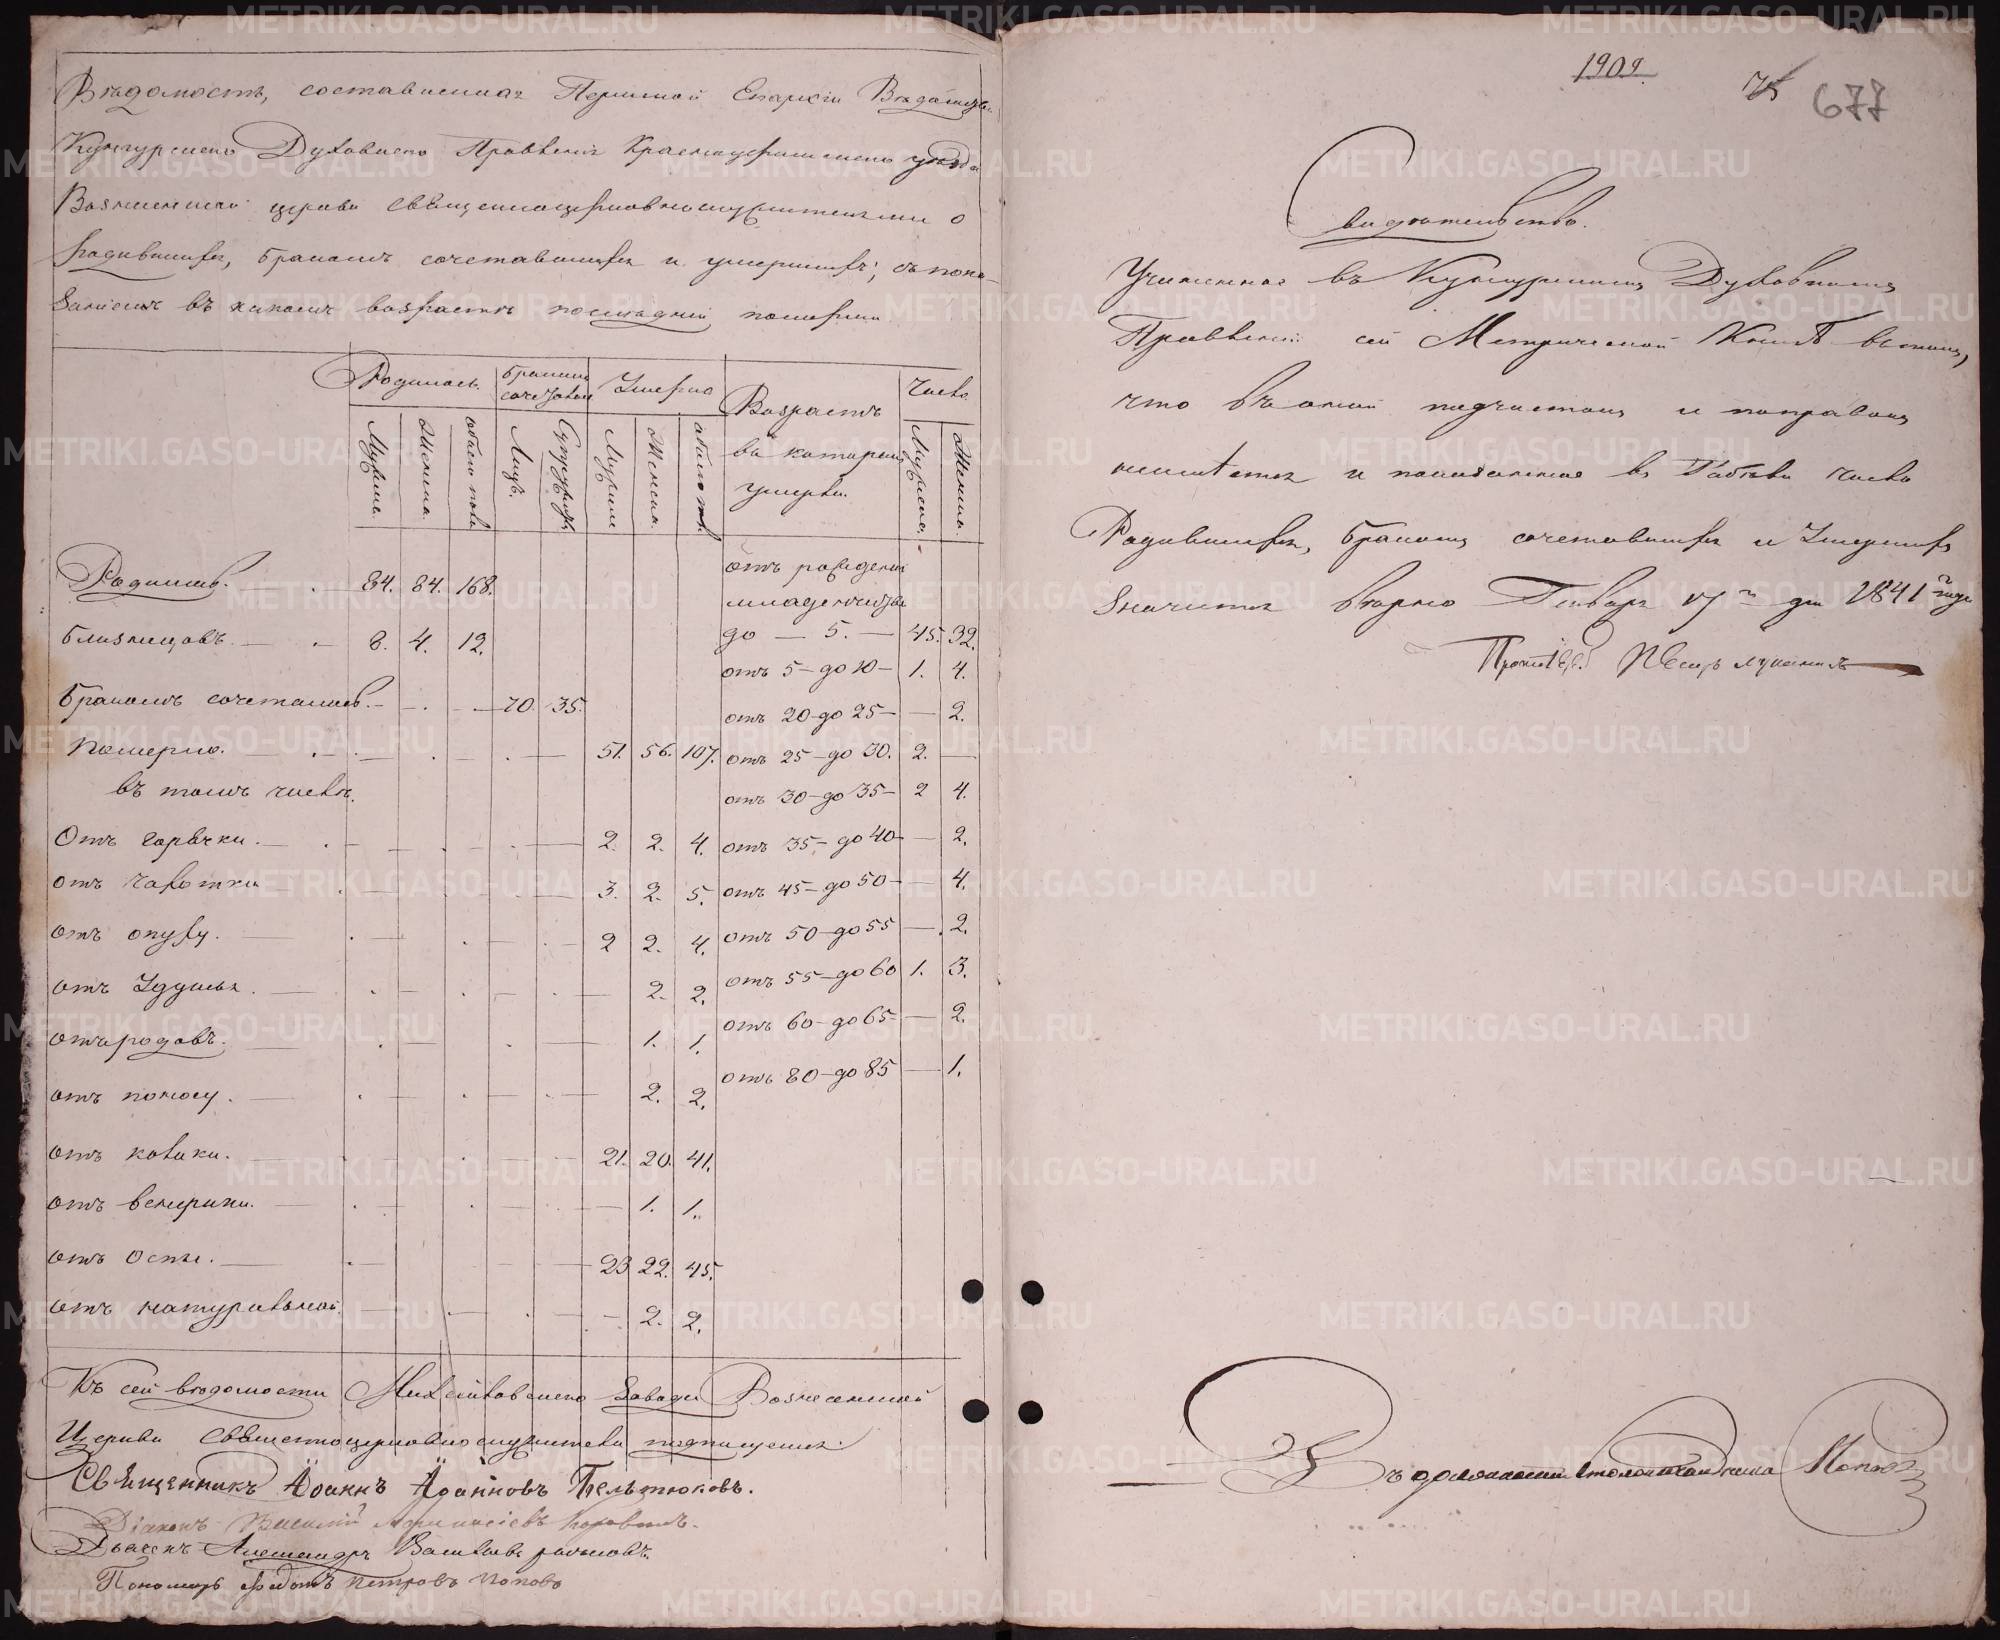 Вѣдомость, составленная Пермской Епархіи Вѣдомства
Кунгурскаго Духовнаго Правленія Красноуфимскаго уѣзда
Вознесенской церкви священноцерковнослужителями о
родившихся, бракомъ сочетавшихся и умершихъ, съ пока-
заніемъ въ какомъ возрастѣ послѣдній померли
Родилось. Бракомъ сочетавш. Умерло Возрастъ въ которомъ умерли. Число
Мужеска. Женска. Обоего пола Лицъ. Супружествъ Мужеска Женска. обоего пола Мужеска. Женска.
Родилось. 84. 84. 168. отъ рожденія младенчества
близнецовъ. 8. 4. 12. до — 5. — 45. 32.
отъ 5 — до 10 — 1. 4.
Бракомъ сочеталось. 70. 35. отъ 20 до 25 — — 2.
Померло. 51. 56. 107. отъ 25 — до 30. 2. —
въ томъ числѣ. отъ 30 — до 35 — 2 4.
Отъ горячки. 2. 2. 4. отъ 35 — до 40 — 2.
отъ чахотки 3. 2. 5. отъ 45 — до 50 — — 4.
отъ опуху. 2 2. 4. отъ 50 — до 55 — 2.
отъ удушья. 2. 2. отъ 55 — до 60 1. 3.
отъ родовъ. 1. 1. отъ 60 — до 65 — 2.
отъ поносу. 2. 2. отъ 80 — до 85 — 1.
отъ колики. 21. 20. 41.
отъ венерики. 1. 1.
отъ Оспы. 23 22. 45.
отъ натуральной. 2. 2.
Къ сей вѣдомости Михайловскаго завода Вознесенской
Церкви священноцерковнослужители подписуемся:
Священникъ Іоаннъ Іоанновъ
Діаконъ Василій
Дьячекъ Александръ
Пономарь Федотъ Петровъ Поповъ
1909.
75
677
Свидѣтельство.
Учиненное въ Кунгурскомъ Духовномъ
Правленіи сей Метрической Книгѣ въ томъ,
что въ оной подчистокъ и поправокъ
неимѣется и показанное въ Табели число
Родившихся, бракомъ сочетавшихся и Умершихъ
значится вѣрно Генваря 17го дня 1841го года
METRIKI.GASO-URAL.RU